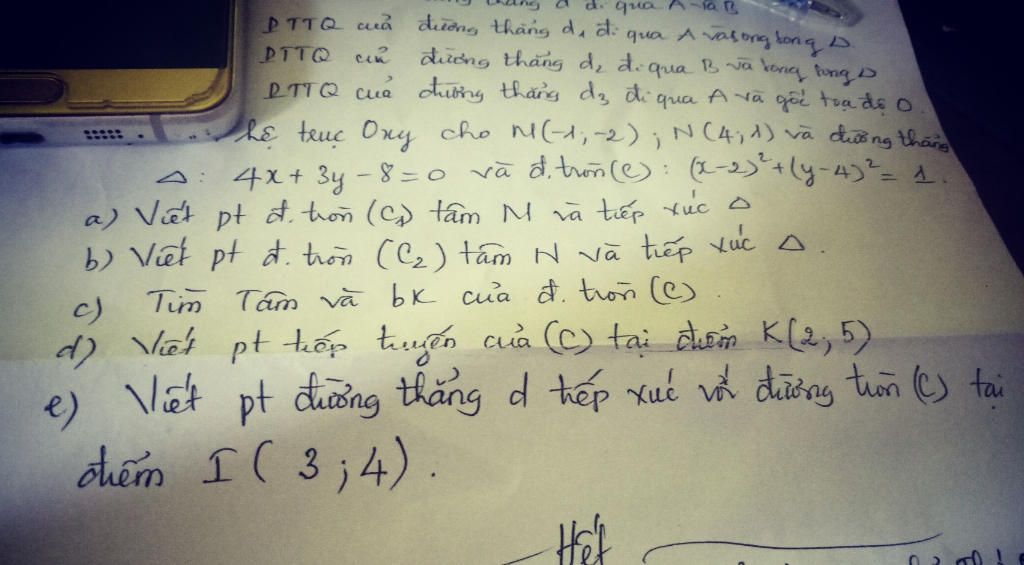 thẳng d đi qua A và B
PTTQ của đường thẳng d₁ đi qua A và song song Δ
PTTQ của đường thẳng d₂ đi qua B và song song Δ
PTTQ của đường thẳng d₃ đi qua A và gốc tọa độ O.
hệ trục Oxy cho M(-1;-2); N(4;1) và đường thẳng
Δ: 4x + 3y - 8 = 0 và đ.tròn (C): (x-2)² + (y-4)² = 1.
a) Viết pt đ.tròn (C₁) tâm M và tiếp xúc Δ
b) Viết pt đ.tròn (C₂) tâm N và tiếp xúc Δ.
c) Tìm Tâm và bk của đ.tròn (C).
d) Viết pt tiếp tuyến của (C) tại điểm K(2;5)
e) Viết pt đường thẳng d tiếp xúc với đường tròn (C) tại
điểm I(3;4).
Hết